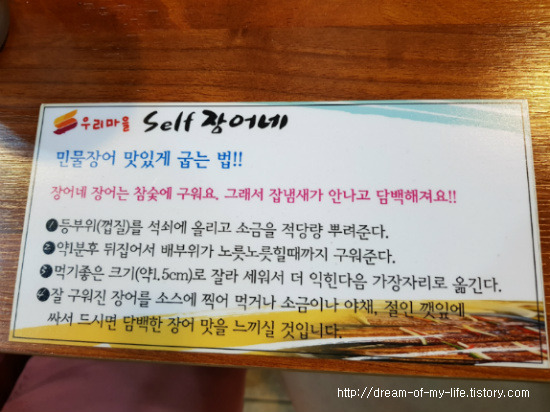 우리마을 Self 장어네
민물장어 맛있게 굽는 법!!
장어네 장어는 참숯에 구워요. 그래서 잡냄새가 안나고 담백해져요!!
1 등부위(껍질)를 석쇠에 올리고 소금을 적당량 뿌려준다.
2 약1분후 뒤집어서 배부위가 노릇노릇힐때까지 구워준다.
3 먹기좋은 크기(약1.5cm)로 잘라 세워서 더 익힌다음 가장자리로 옮긴다.
4 잘 구워진 장어를 소스에 찍어 먹거나 소금이나 야채, 절인 깻잎에
싸서 드시면 담백한 장어 맛을 느끼실 것입니다.
http://dream-of-my-life.tistory.com